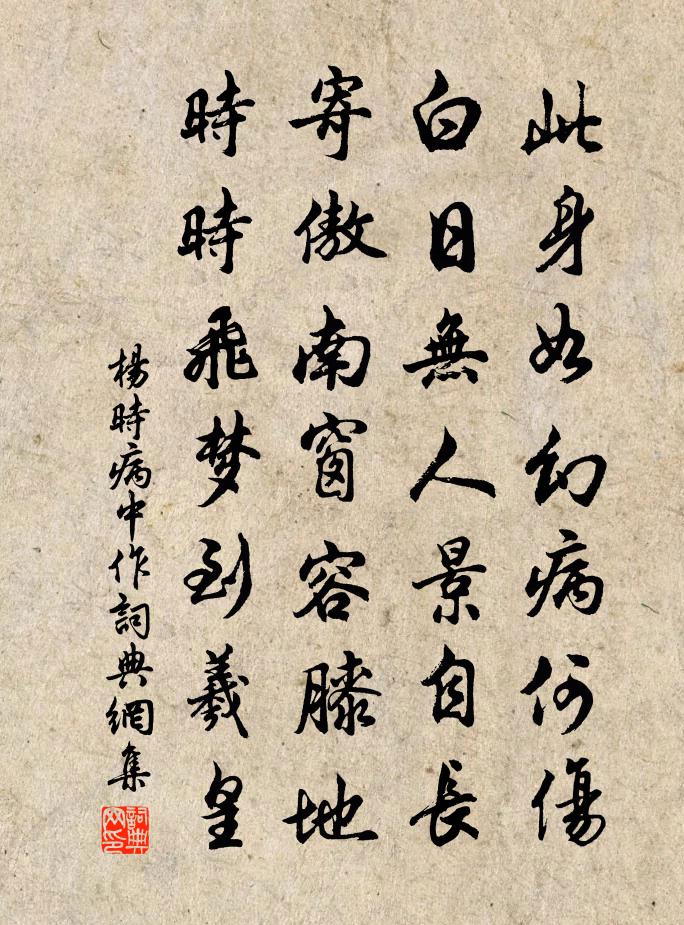 此身如幻病何傷
白日無人景自長
寄傲南窗容膝地
時時飛梦到羲皇
楊時病中作詞典網集
詞典网印